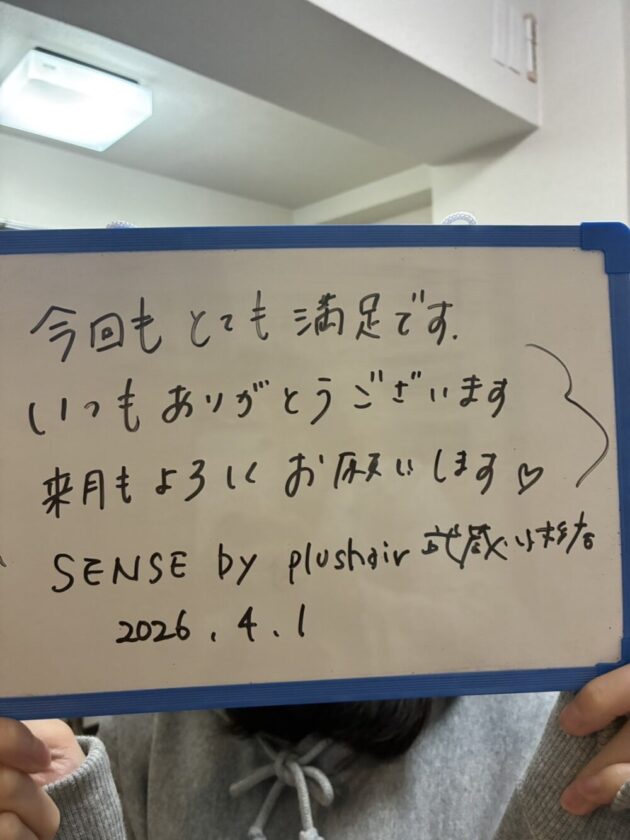 今回もとても満足です.
いつもありがとうございます
来月もよろしくお願いします♡
SENSE by plushair 武蔵小杉店
2026.4.1